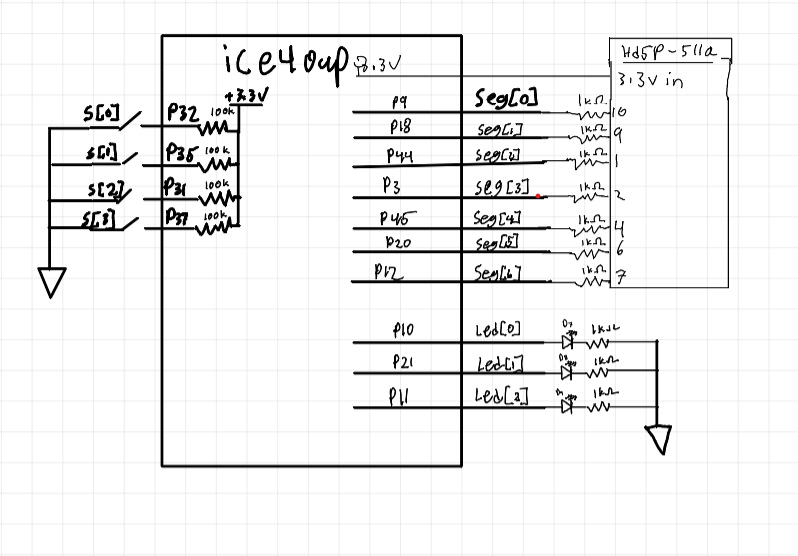 ice40up
3.3V
Hd5P-511a
3.3V in
+3.3V
S[0]
P32
100k
S[1]
P35
100k
S[2]
P31
100k
S[3]
P37
100k
P9
Seg[0]
1kΩ
10
P18
Seg[1]
1kΩ
9
P44
Seg[2]
1kΩ
1
P3
Seg[3]
1kΩ
2
P45
Seg[4]
1kΩ
4
P20
Seg[5]
1kΩ
6
P12
Seg[6]
1kΩ
7
P10
Led[0]
1kΩ
P21
Led[1]
1kΩ
P11
Led[2]
1kΩ